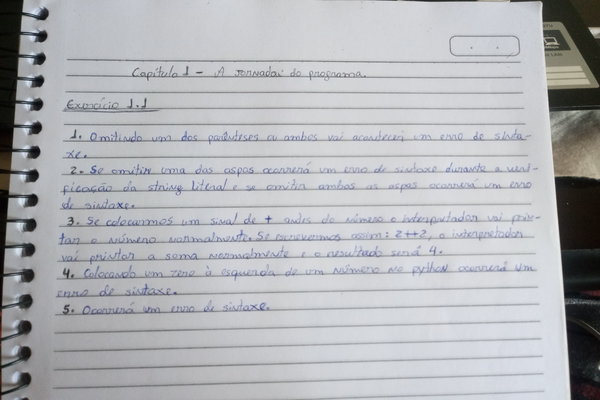 Capítulo 1 - A jornada do programa.
Exercício 1.1
1. Omitindo um dos parênteses ou ambos vai acontecer um erro de sinta-
xe.
2. Se omitir uma das aspas ocorrerá um erro de sintaxe durante a veri-
ficação da string literal e se omitir ambas as aspas ocorrerá um erro
de sintaxe.
3. Se colocarmos um sinal de + antes do número o interpretador vai prin-
tar o número normalmente. Se escrevermos assim: 2++2, o interpretador
vai printar a soma normalmente e o resultado será 4.
4. Colocando um zero à esquerda de um número no python ocorrerá um
erro de sintaxe.
5. Ocorrerá um erro de sintaxe.